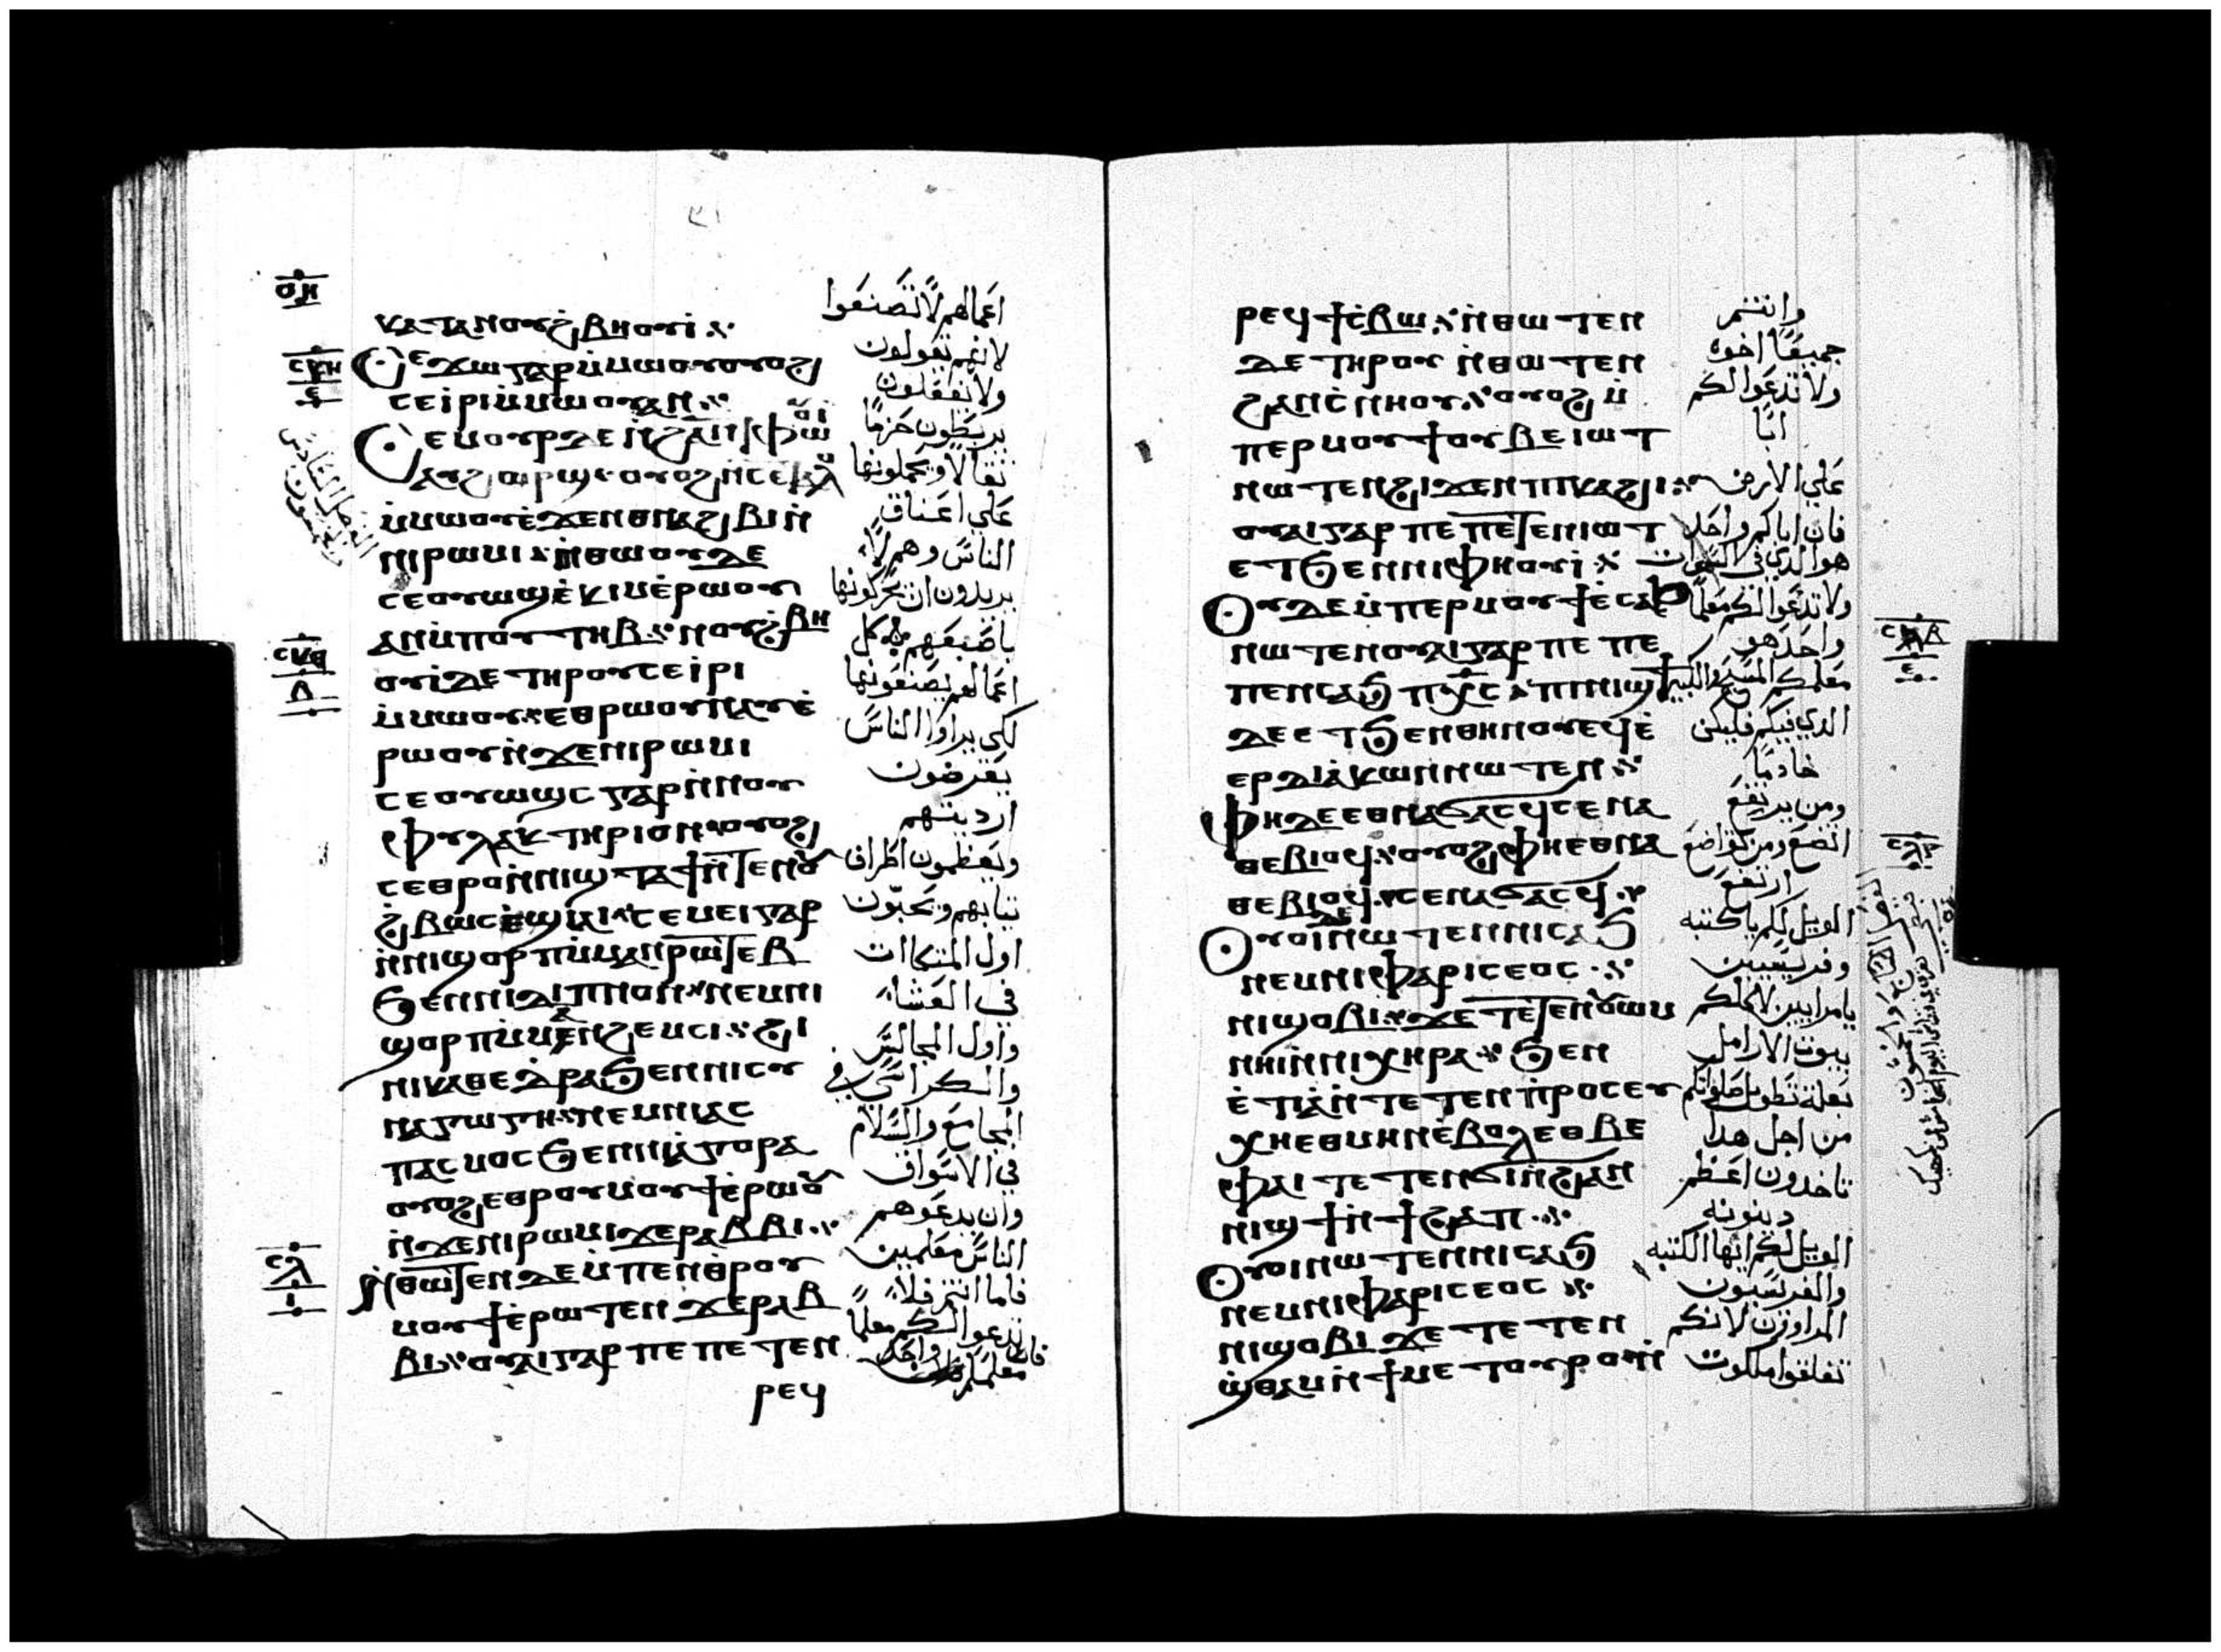 ⲟⲏ
ⲕⲁⲧⲁⲛⲟⲩϩ̇ⲃⲏⲟⲩⲓ̇
ⲥⲕⲏ
ⲥⲉϫⲱⲅⲁⲣⲙ̇ⲙⲱⲟⲩⲟⲩⲟϩ
ⲥⲉⲓ̇ⲣⲓⲙ̇ⲙⲱⲟⲩⲁⲛ
ⲥⲉⲙⲟⲩⲣⲇⲉⲛ̇ϩⲁⲛⲉⲧⲫⲱⲟⲩⲓ̇
ⲉⲩϩⲟⲣϣ ⲟⲩⲟϩⲛ̇ⲥⲉⲧⲁⲗⲟ
ⲙ̇ⲙⲱⲟⲩⲉ̇ϫⲉⲛⲑⲛⲁϩⲃⲓⲛ̇
ⲛⲓⲣⲱⲙⲓ ⲛ̇ⲑⲱⲟⲩⲇⲉ
ⲥⲉⲟⲩⲱϣⲉ̇ⲕⲓⲙⲉ̇ⲣⲱⲟⲩ
ⲁⲛⲙ̇ⲡⲟⲩⲧⲏⲃ ⲛⲟⲩϩ̇ⲃⲏ
ⲥⲕⲑ
ⲟⲩⲓ̇ⲇⲉⲧⲏⲣⲟⲩⲥⲉⲓ̇ⲣⲓ
ⲙ̇ⲙⲱⲟⲩ ⲉⲑⲣⲱⲟⲩⲛⲁⲩⲉ̇
ⲣⲱⲟⲩⲛ̇ϫⲉⲛⲓⲣⲱⲙⲓ
ⲥⲉⲟⲩⲱϣⲥ ⲅⲁⲣⲛ̇ⲛⲟⲩ
ⲫⲩⲗⲁⲕⲧⲏⲣⲓⲟⲛ ⲟⲩⲟϩ
ⲥⲉⲑⲣⲟⲛ̇ⲛⲓϣⲧⲁϯⲛ̇ⲧⲉⲛⲟⲩ
ϩ̇ⲃⲱⲥⲉ̇ϣⲓⲁⲓ ⲥⲉⲙⲉⲓⲅⲁⲣ
ⲛ̇ⲛⲓϣⲟⲣⲡⲙ̇ⲙⲁⲛ̇ⲣⲱⲧⲉⲃ
ϧⲉⲛⲛⲓⲇⲓⲡⲛⲟⲛ ⲛⲉⲙⲛⲓ
ϣⲟⲣⲡⲙ̇ⲙⲁⲛϩⲉⲙⲥⲓ ϩⲓ
ⲛⲓⲕⲁⲑⲉⲇⲣⲁϧⲉⲛⲛⲓⲥⲩ
ⲛⲁⲅⲱⲅⲏ ⲛⲉⲙⲛⲓⲁⲥ
ⲡⲁⲥⲙⲟⲥϧⲉⲛⲛⲓⲁ̇ⲅⲟⲣⲁ
ⲟⲩⲟϩⲉⲑⲣⲟⲩⲙⲟⲩϯⲉ̇ⲣⲱⲟⲩ
ⲛ̇ϫⲉⲛⲓⲣⲱⲙⲓϫⲉⲣⲁⲃⲃⲓ
ⲥⲗ
ⲛ̇ⲑⲱⲧⲉⲛⲇⲉⲙ̇ⲡⲉⲛⲑ̇ⲣⲟⲩ
ⲙⲟⲩϯⲉ̇ⲣⲱⲧⲉⲛ ϫⲉⲣⲁⲃ
ⲃⲓ ⲟⲩⲁⲓⲅⲁⲣ ⲡⲉ ⲡⲉⲧⲉⲛ
ⲣⲉϥ
اعمالهم لا تصنعوا
لانهم تقولون
ولا تفعلون
يربطون حزما
ثقالا ويحملونها
علي اعناق
الناس وهم لا
يريدون ان يحركونها
باصبعهم كل
اعمالهم يصنعونها
لكي يراوا الناس
يعرضون
ارديتهم
ويعظمون اطراف
ثيابهم ويحبون
اول المتكاات
في العشاء
واول المجالس
والكراسي في
المجامع والسلام
في الاسواق
وان يدعوهم
الناس معلمين
فاما انتم فلا
تدعوا لكم معلما
فان معلمكم واحد
ⲣⲉϥϯⲥ̇ⲃⲱ ⲛ̇ⲑⲱⲧⲉⲛ
ⲇⲉⲧⲏⲣⲟⲩ ⲛ̇ⲑⲱⲧⲉⲛ
ϩⲁⲛⲥ̇ⲛⲏⲟⲩ ⲟⲩⲟϩⲙ̇
ⲡⲉⲣⲙⲟⲩϯⲟⲩⲃⲉⲓⲱⲧ
ⲛⲱⲧⲉⲛϩⲓϫⲉⲛⲡⲓⲕⲁϩⲓ
ⲟⲩⲁⲓⲅⲁⲣ ⲡⲉ ⲡⲉⲧⲉⲛⲓⲱⲧ
ⲉⲧϧⲉⲛⲛⲓⲫⲏⲟⲩⲓ̇
ⲟⲩⲇⲉⲙ̇ⲡⲉⲣⲙⲟⲩϯⲉ̇ⲥⲁϧ
ⲥⲗⲃ
ⲛⲱⲧⲉⲛⲟⲩⲁⲓⲅⲁⲣⲡⲉ ⲡⲉ
ⲡⲉⲛⲥⲁϧ ⲡⲭ̅ⲥ ⲡⲓⲛⲓϣϯ
ⲇⲉⲉⲧϧⲉⲛⲑⲏⲛⲟⲩⲉϥⲉ̇
ⲉⲣⲇⲓⲁ̇ⲕⲱⲛⲛⲱⲧⲉⲛ
ⲫⲏⲇⲉⲉⲑⲛⲁϭⲁⲥϥⲥⲉⲛⲁ
ⲑⲉⲃⲓⲟϥ ⲟⲩⲟϩⲫⲏⲉⲑⲛⲁ
ⲑⲉⲃⲓⲟϥ ⲥⲉⲛⲁϭⲁⲥϥ
ⲟⲩⲟⲓⲇⲉⲛⲱⲧⲉⲛⲛⲓⲥⲁϧ
ⲛⲉⲙⲛⲓⲫⲁⲣⲓⲥⲉⲟⲥ
ⲛⲓϣⲟⲃⲓ ϫⲉⲧⲉⲧⲉⲛⲟⲩⲱⲙ
ⲛⲏⲓⲛ̇ⲛⲓⲭⲏⲣⲁ ϧⲉⲛ
ⲉ̇ⲧⲓⲁ̇ⲛ̇ⲧⲉⲧⲉⲛⲡ̇ⲣⲟⲥⲉⲩ
ⲭⲏⲉⲑⲙⲏⲛⲉ̇ⲃⲟⲗⲉⲑⲃⲉ
ⲫⲁⲓ ⲧⲉⲧⲉⲛϭⲓⲛ̇ϩⲁⲛ
ⲛⲓϣϯⲛ̇ϯϩⲁⲡ
ⲟⲩⲟⲓⲛⲱⲧⲉⲛⲛⲓⲥⲁϧ
ⲛⲉⲙⲛⲓⲫⲁⲣⲓⲥⲉⲟⲥ
ⲛⲓϣⲟⲃⲓ ϫⲉⲧⲉⲧⲉⲛ
ϣ̇ⲑⲁⲙⲛ̇ϯⲙⲉⲧⲟⲩⲣⲟⲛ̇
وانتم
جميعا اخوه
ولا تدعوا لكم
ابا
علي الارض
فان اباكم واحد
هو الذي في السموات
ولا تدعوا لكم معلما
واحد هو
معلمكم المسيح والكبير
الذي فيكم فليكن
خادما
ومن يرتفع
اتضع ومن تواضع
ارتفع
الويل لكم يا كتبه
وفريسيين
يا مرايين لاكلكم
بيوت الارامل
بعلة تطويل صلواتكم
من اجل هدا
تاخدون اعظم
دينونه
الويل لكم ايها الكتبه
والفريسيون
المراوون لانكم
تغلقوا ملكوت